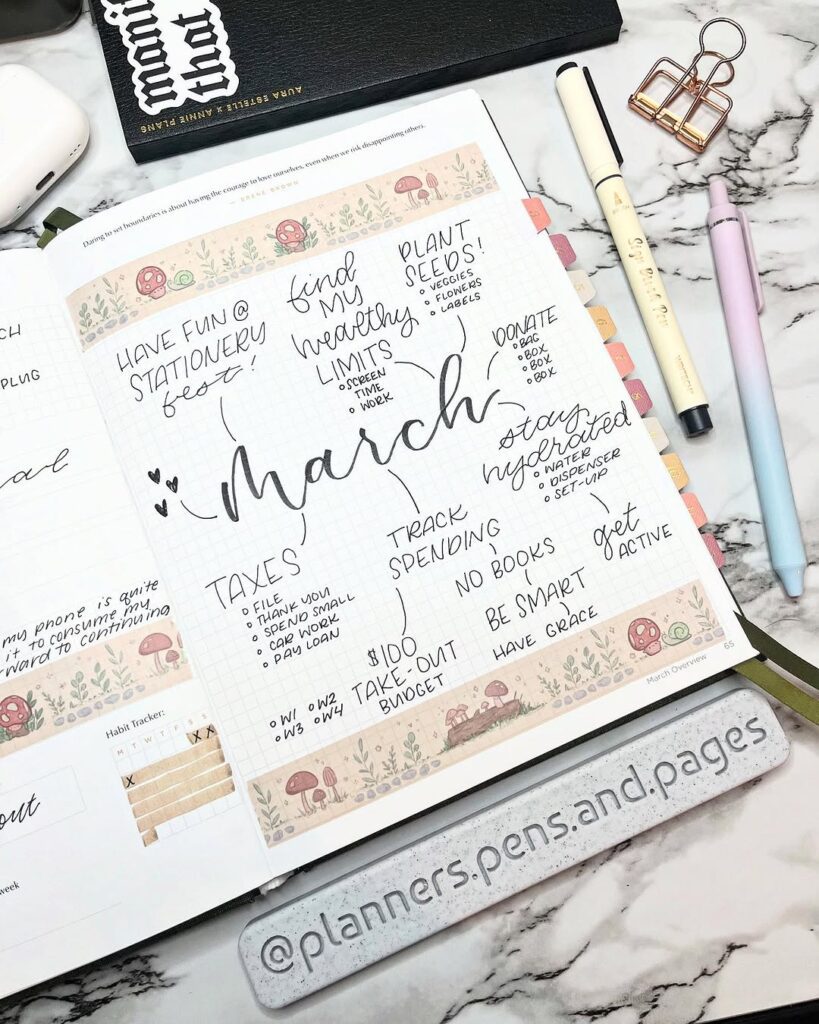 mani
that
AURA ESTELLE X ANNIE PLANS
Daring to set boundaries is about having the courage to love ourselves, even when we risk disappointing others.
— BRENÉ BROWN
HAVE FUN @
STATIONERY
fest!
find
MY
healthy
LIMITS
SCREEN
TIME
WORK
PLANT
SEEDS!
VEGGIES
FLOWERS
LABELS
DONATE
BAG
BOX
BOX
BOX
march
stay
hydrated
WATER
DISPENSER
SET-UP
get
ACTIVE
TAXES
FILE
THANK YOU
SPEND SMALL
CAR WORK
PAY LOAN
TRACK
SPENDING
$100
TAKE-OUT
BUDGET
W1 W2
W3 W4
NO BOOKS
BE SMART
HAVE GRACE
March Overview 65
PLUG
my phone is quite
it to consume my
ward to continuing
Habit Tracker:
M T W T F S S
X X
X
out
week
Sign Brush Pen
@planners.pens.and.pages